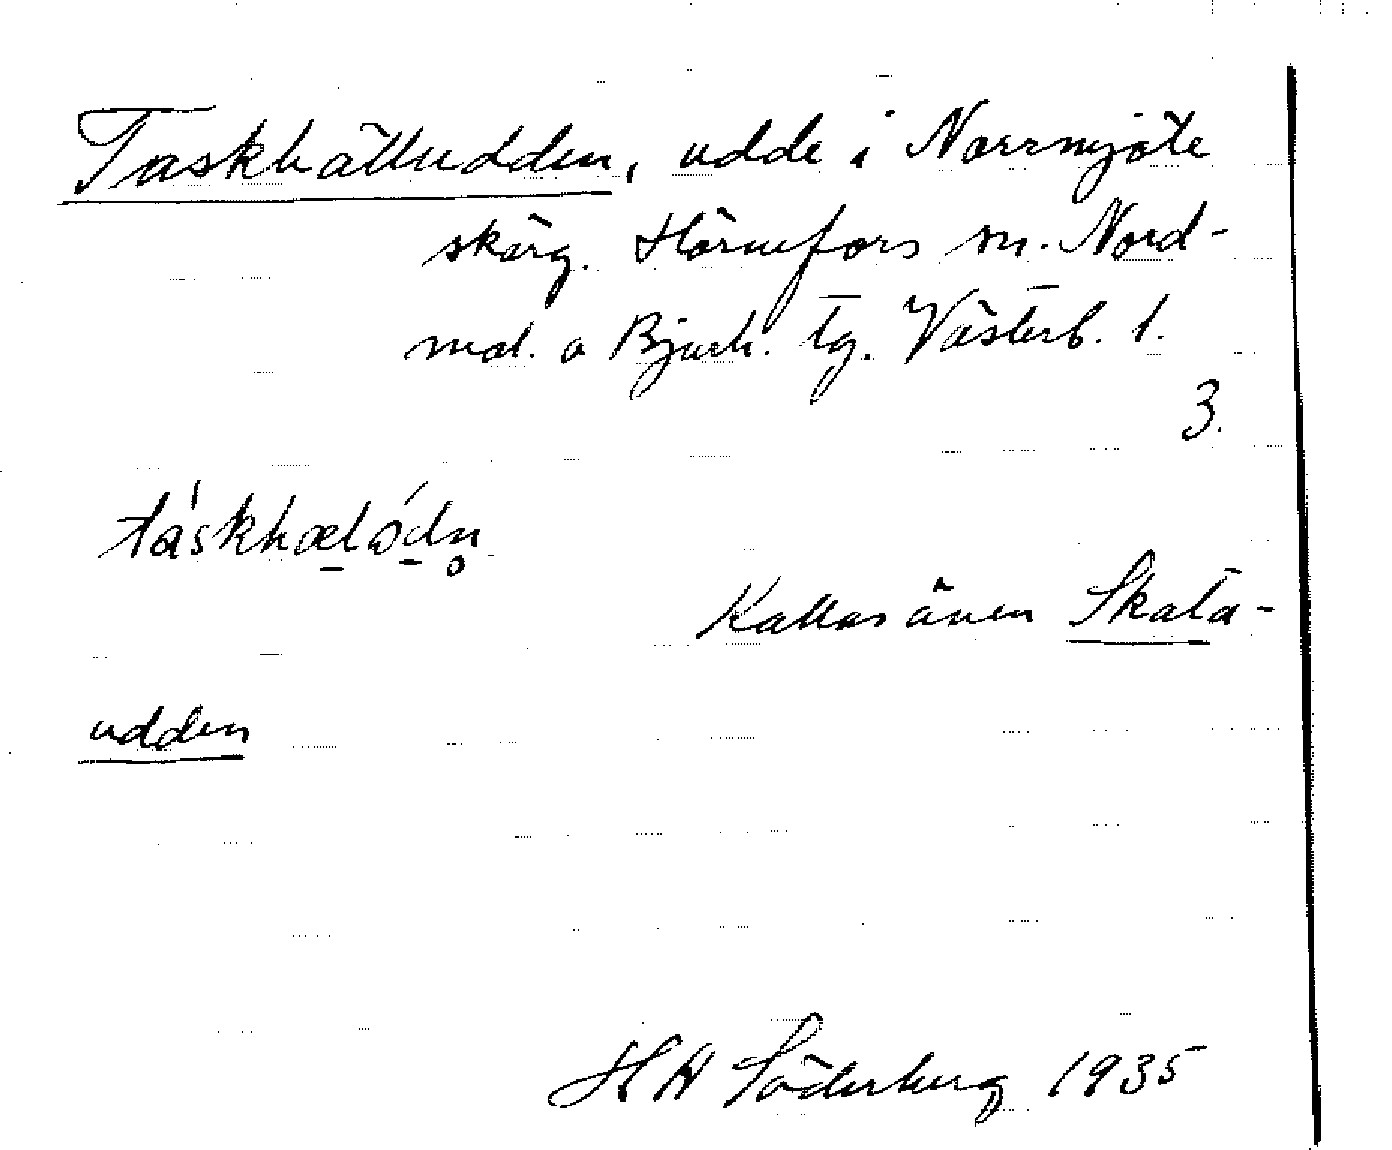 Taskhälludden, udde i Norrmjöle
skärg. Hörnefors sn. Nord-
mal. o Bjurh. tg. Västerb. l.
3.
táskhælódn̥
Kallas även Skata-
udden
H A Söderberg 1935